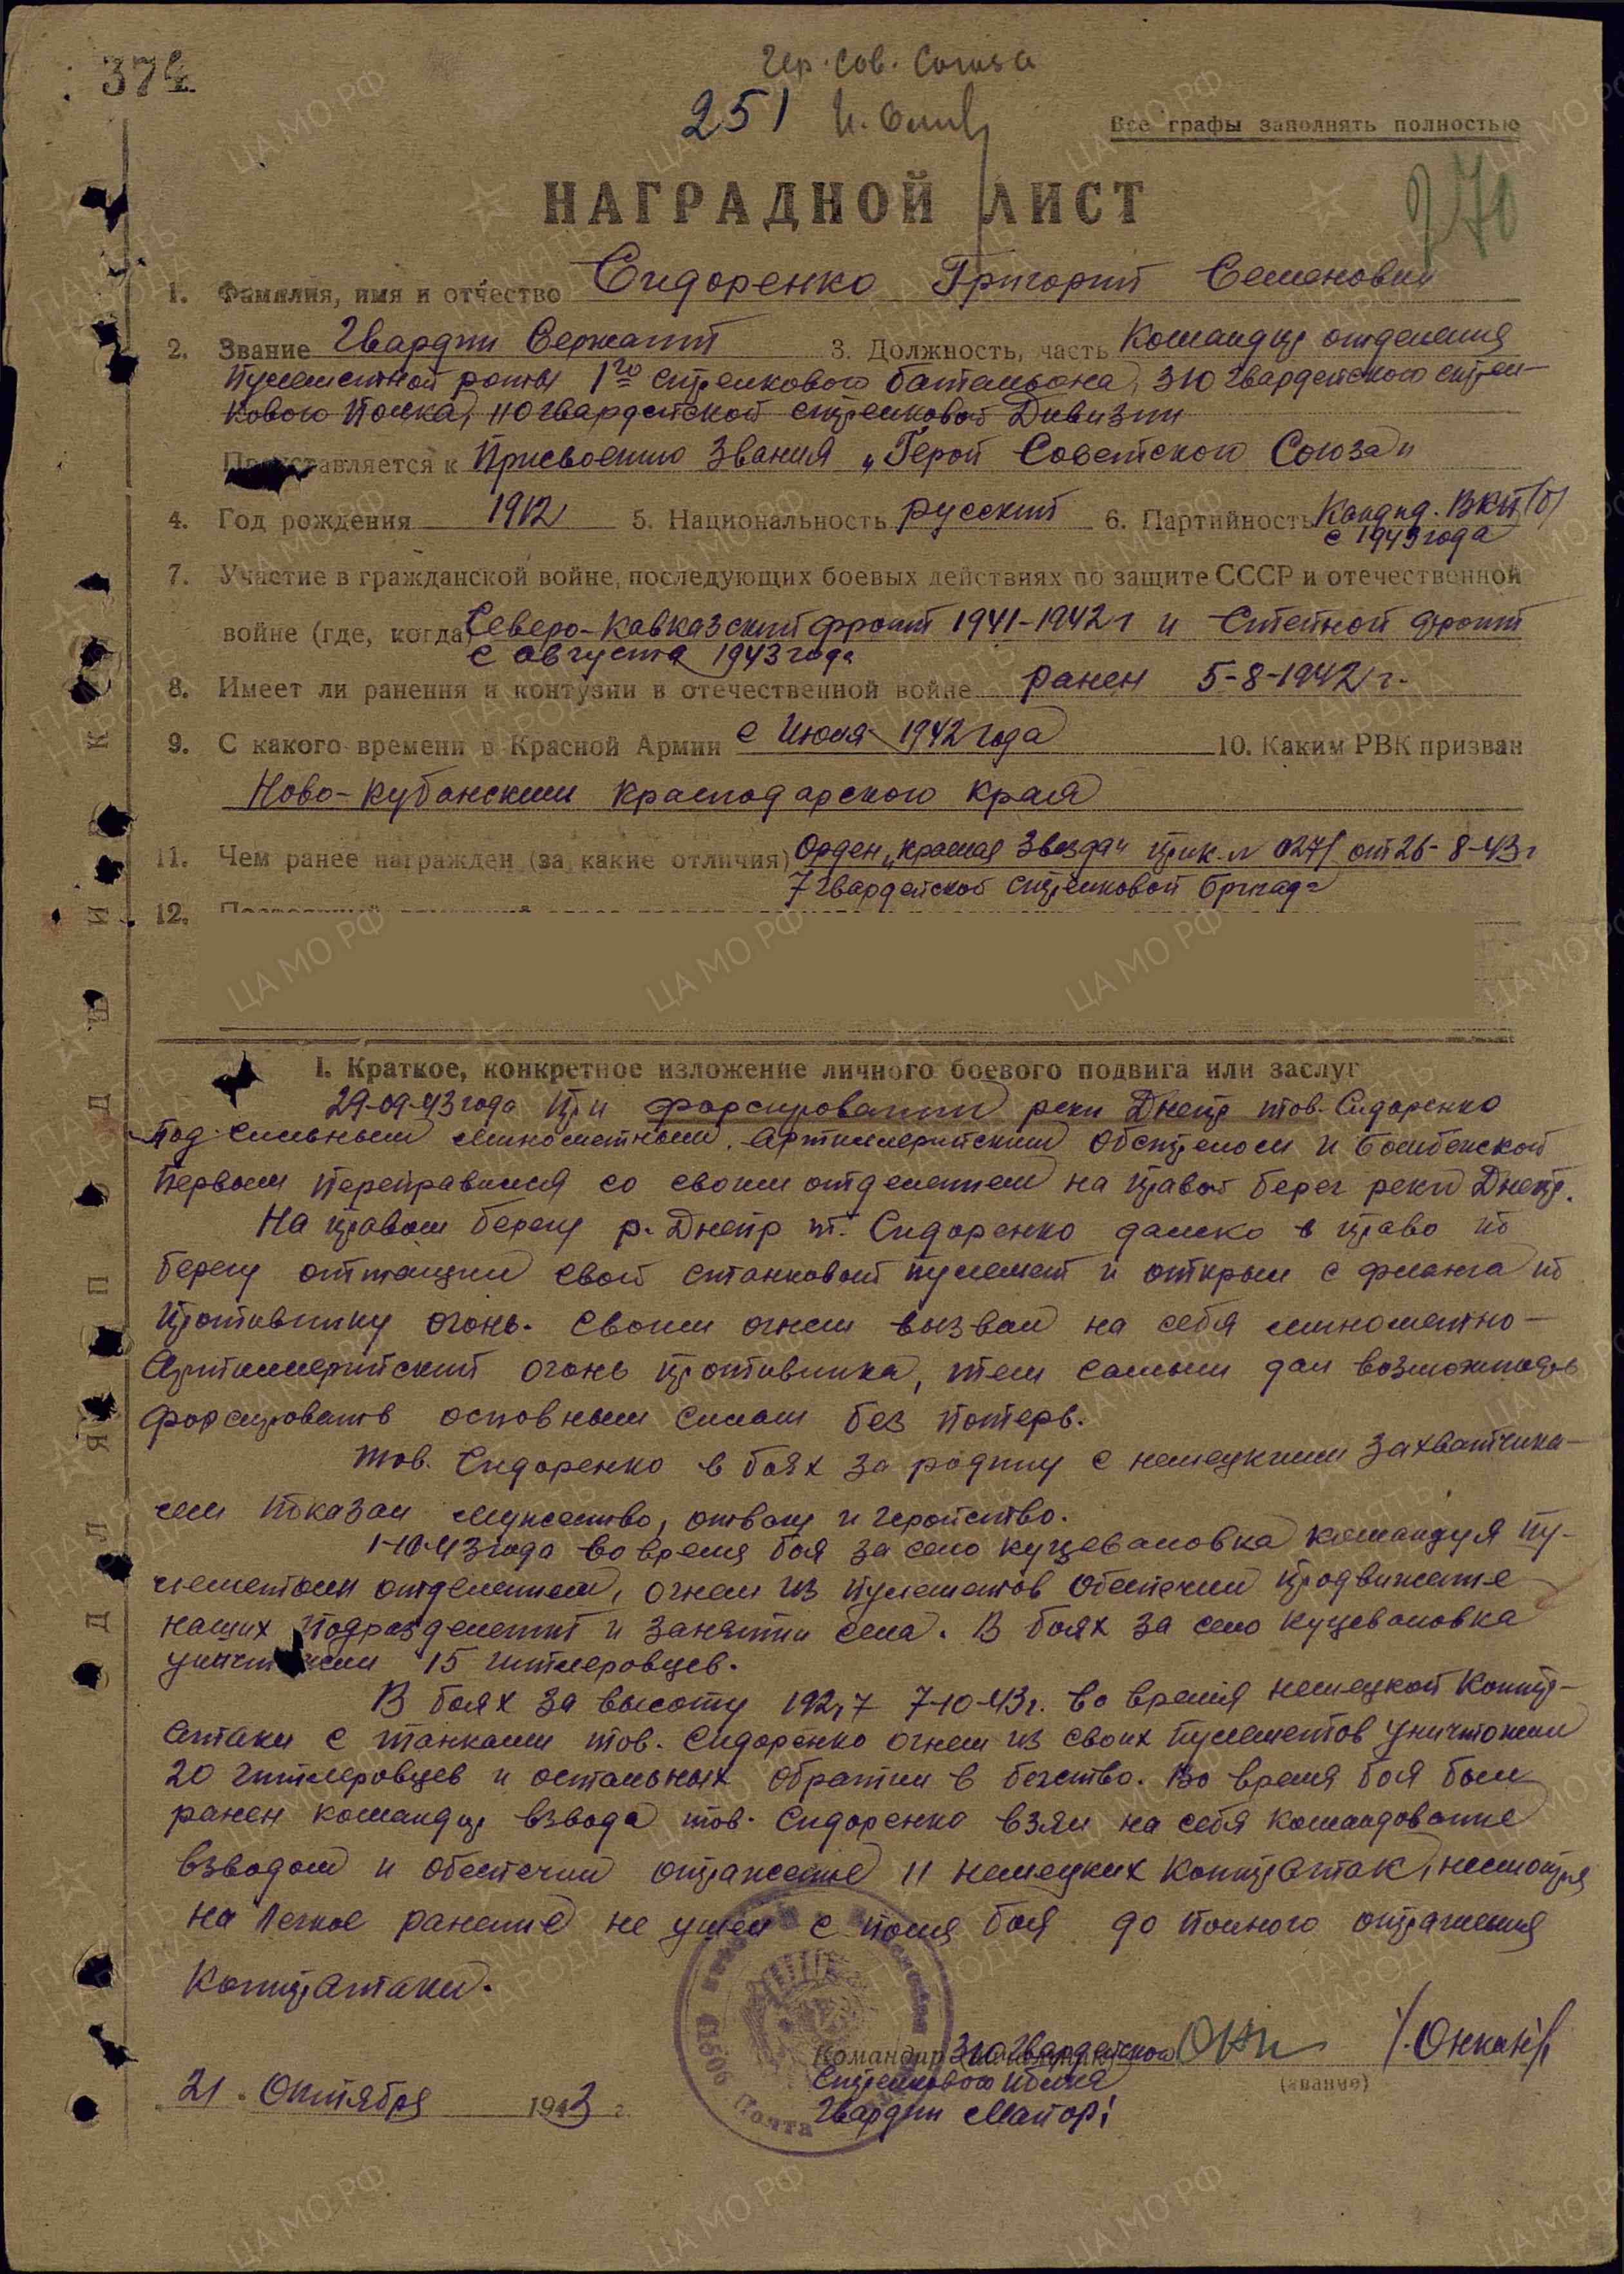 374
Гер. Сов. Союза
251
Все графы заполнять полностью
270
НАГРАДНОЙ ЛИСТ
1. Фамилия, имя и отчество Сидоренко Григорий Семенович
2. Звание Гвардии Сержант 3. Должность, часть Командир отделения
пулеметной роты 1го стрелкового батальона, 310 гвардейского стрел-
кового полка, 110 гвардейской стрелковой Дивизии
Представляется к Присвоению звания „Герой Советского Союза"
4. Год рождения 1912 5. Национальность русский 6. Партийность Кандид. ВКП/б/
с 1943 года
7. Участие в гражданской войне, последующих боевых действиях по защите СССР и отечественной
войне (где, когда) Северо-Кавказский фронт 1941-1942 г и Степной фронт
с августа 1943 года
8. Имеет ли ранения и контузии в отечественной войне ранен 5-8-1942 г.
9. С какого времени в Красной Армии с Июля 1942 года 10. Каким РВК призван
Ново-Кубанским Краснодарского края
11. Чем ранее награжден (за какие отличия) Орден „Красная Звезда" прик. № 027/ от 26-8-43 г
7 гвардейской стрелковой бригаде
12.
I. Краткое, конкретное изложение личного боевого подвига или заслуг
29-09-43 года При форсировании реки Днепр тов. Сидоренко
под сильным минометным, артиллерийским обстрелом и бомбежкой
первым переправился со своим отделением на правый берег реки Днепр.
На правом берегу р. Днепр т. Сидоренко далеко в право по
берегу оттащил свой станковый пулемет и открыл с фланга по
противнику огонь. Своим огнем вызвал на себя минометно-
артиллерийский огонь противника, тем самым дал возможность
форсировать основным силам без потерь.
Тов. Сидоренко в боях за родину с немецкими захватчика-
ми показал мужество, отвагу и геройство.
1-10-43 года во время боя за село Куцеваловка командуя пу-
леметным отделением, огнем из пулеметов обеспечил продвижение
наших подразделений и занятии села. В боях за село Куцеваловка
уничтожил 15 гитлеровцев.
В боях за высоту 192,7 7-10-43 г. во время немецкой Контр-
атаки с танками тов. Сидоренко огнем из своих пулеметов уничтожил
20 гитлеровцев и остальных обратил в бегство. Во время боя был
ранен командир взвода тов. Сидоренко взял на себя командование
взводом и обеспечил отражение 11 немецких контратак, несмотря
на легкое ранение не ушел с поля боя до полного отражения
Контратаки.
Командир 310 Гвардейского
Стрелкового полка
Гвардии Майор:
(звание)
21 Октября 1943 г.
Почта
ПОДЛЯ ПОДШИВКИ
ЦА МО РФ
ПАМЯТЬ НАРОДА